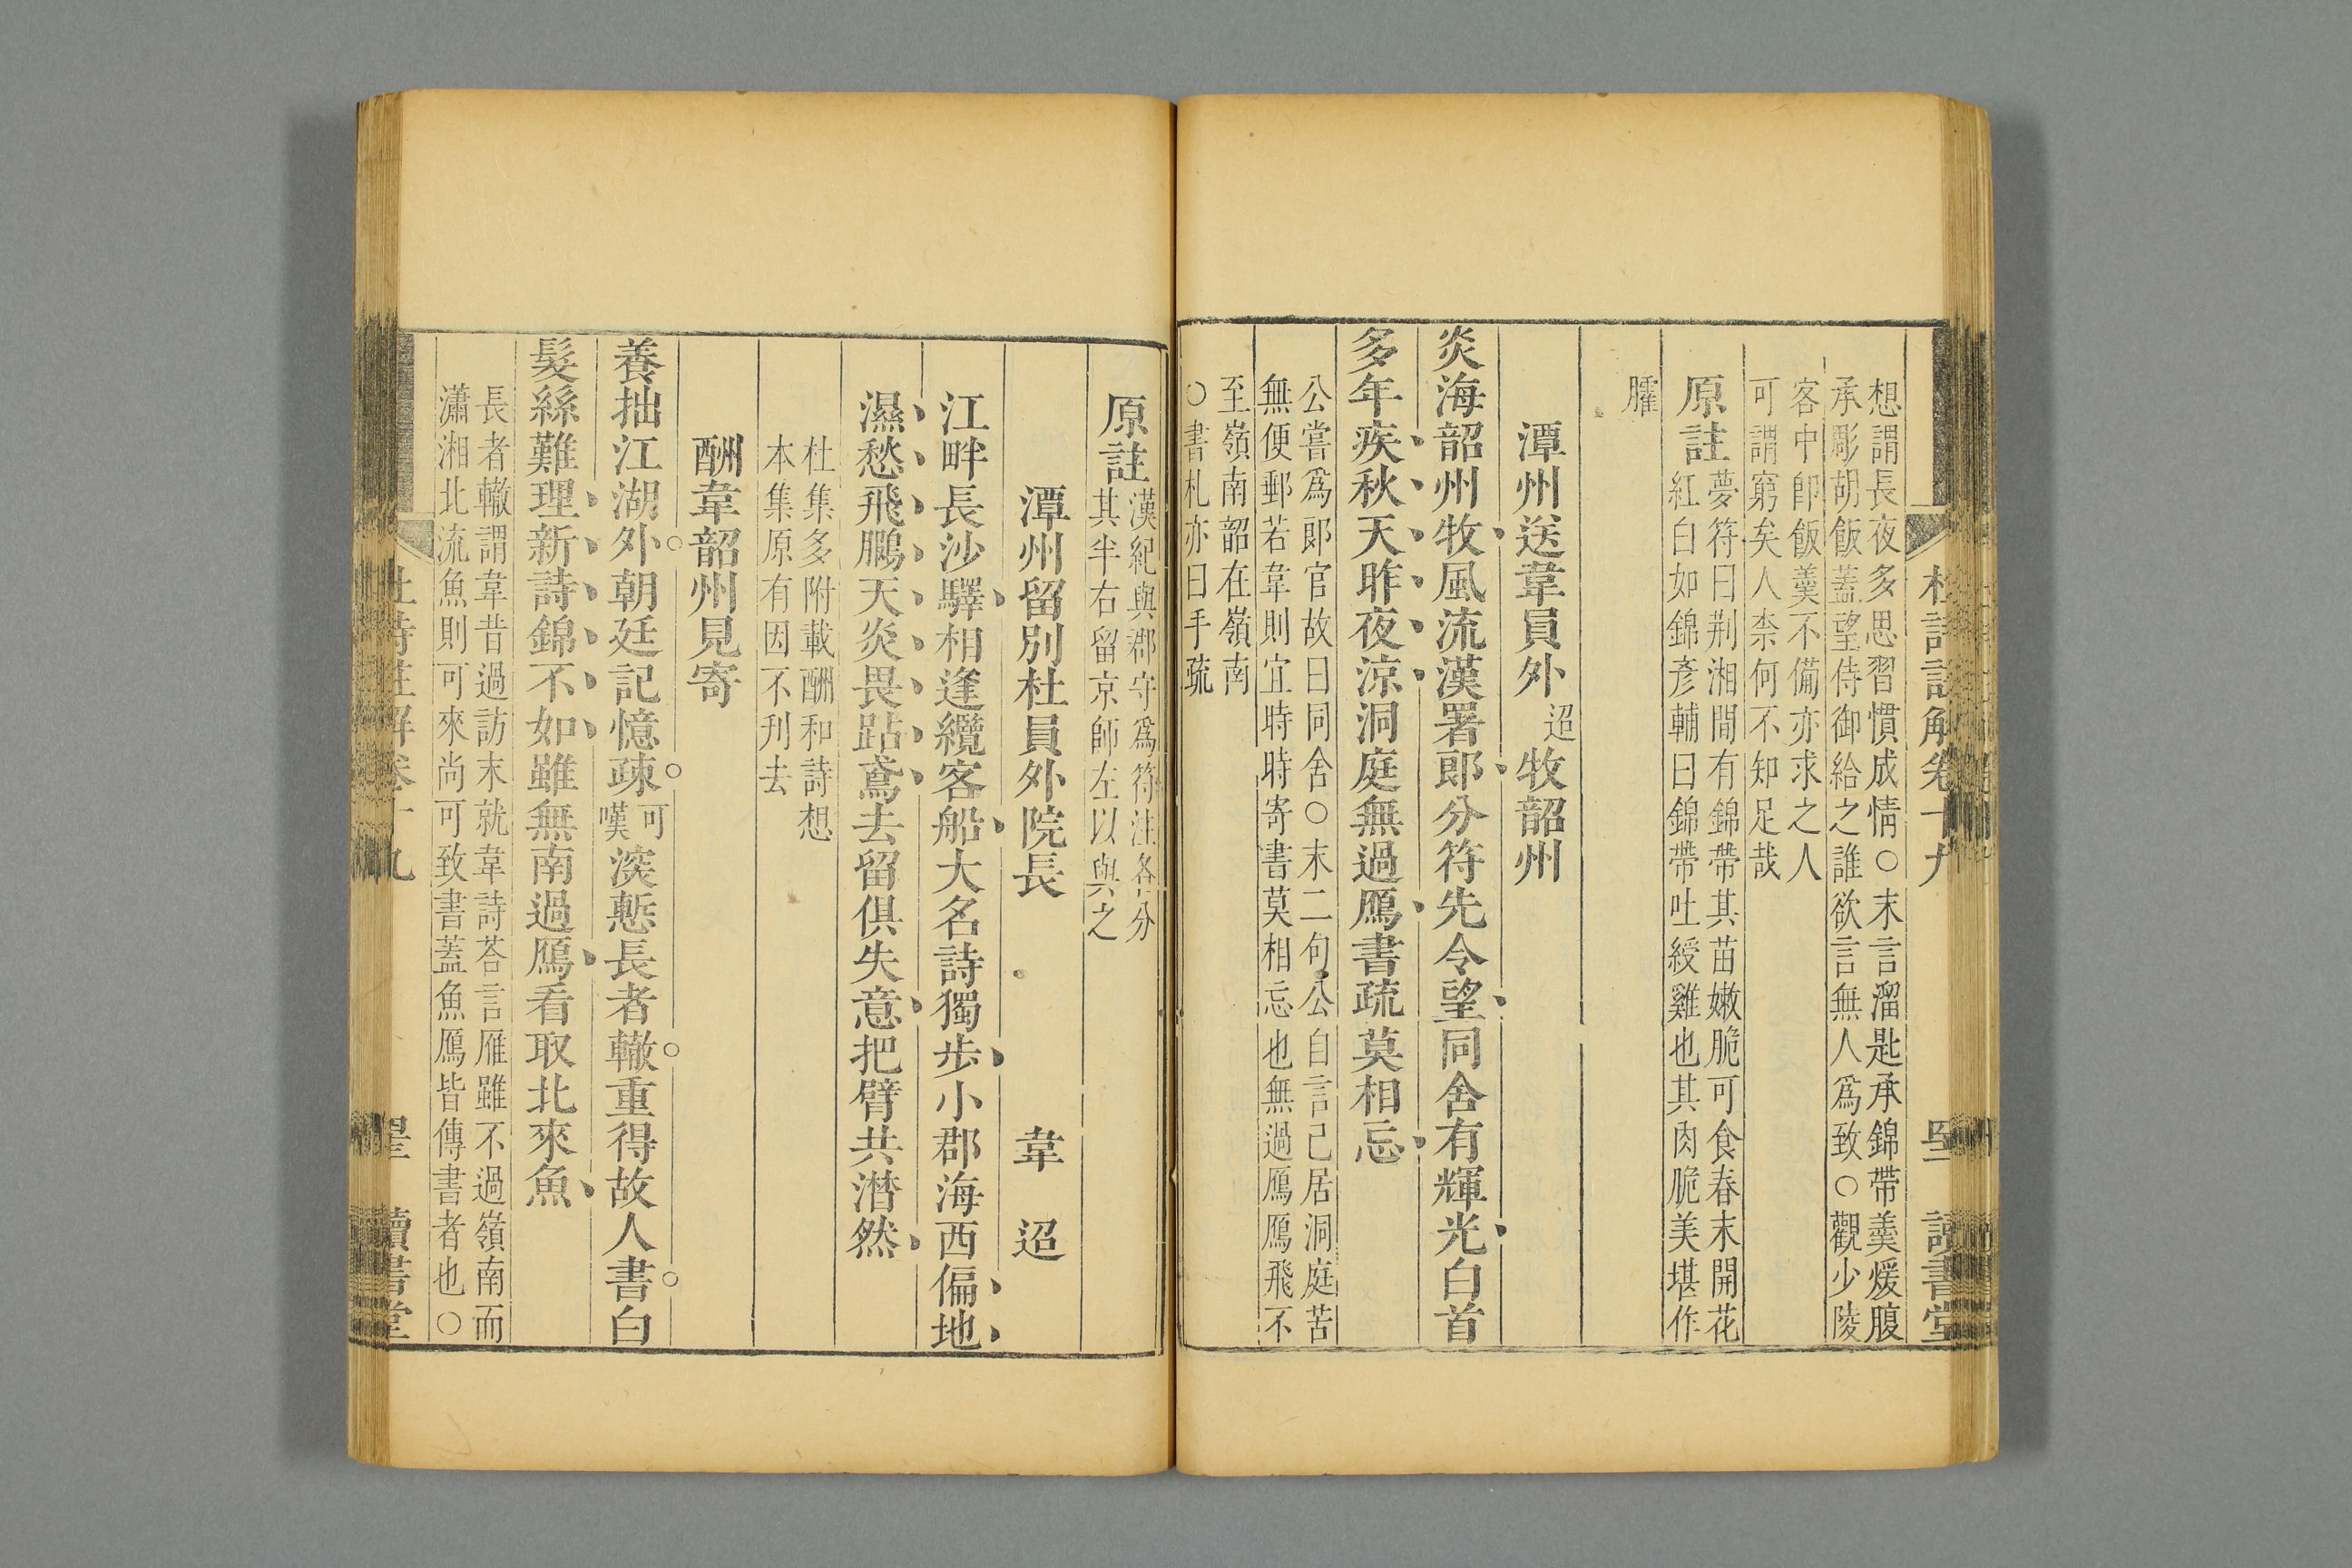 想謂長夜多思習慣成情○末言溜匙承錦帶羹煖腹
承彫胡飯蓋望侍御給之誰欲言無人爲致○觀少陵
客中卽飯羹不備亦求之人
可謂窮矣人柰何不知足哉
原註
夢符曰荆湘間有錦帶其苗嫩脆可食春末開花
紅白如錦彥輔曰錦帶吐綬雞也其肉脆美堪作
臛
潭州送韋員外迢牧韶州
炎海韶州牧風流漢署郎分符先令望同舍有輝光白首
多年疾秋天昨夜涼洞庭無過鴈書疏莫相忘
公嘗爲郎官故曰同舍○末二句公自言己居洞庭苦
無便郵若韋則宜時時寄書莫相忘也無過鴈鴈飛不
至嶺南韶在嶺南
○書札亦曰手疏
原註
漢紀與郡守爲符注各分
其半右留京師左以與之
潭州留別杜員外院長 韋 迢
江畔長沙驛相逢纜客船大名詩獨步小郡海西偏地
濕愁飛鵩天炎畏跕鳶去留俱失意把臂共潸然
杜集多附載酬和詩想
本集原有因不刋去
酬韋韶州見寄
養拙江湖外朝廷記憶疎可嘆深慙長者轍重得故人書白
髮絲難理新詩錦不如雖無南過鴈看取北來魚
長者轍謂韋昔過訪末就韋詩荅言雁雖不過嶺南而
瀟湘北流魚則可來尚可致書蓋魚鴈皆傳書者也○